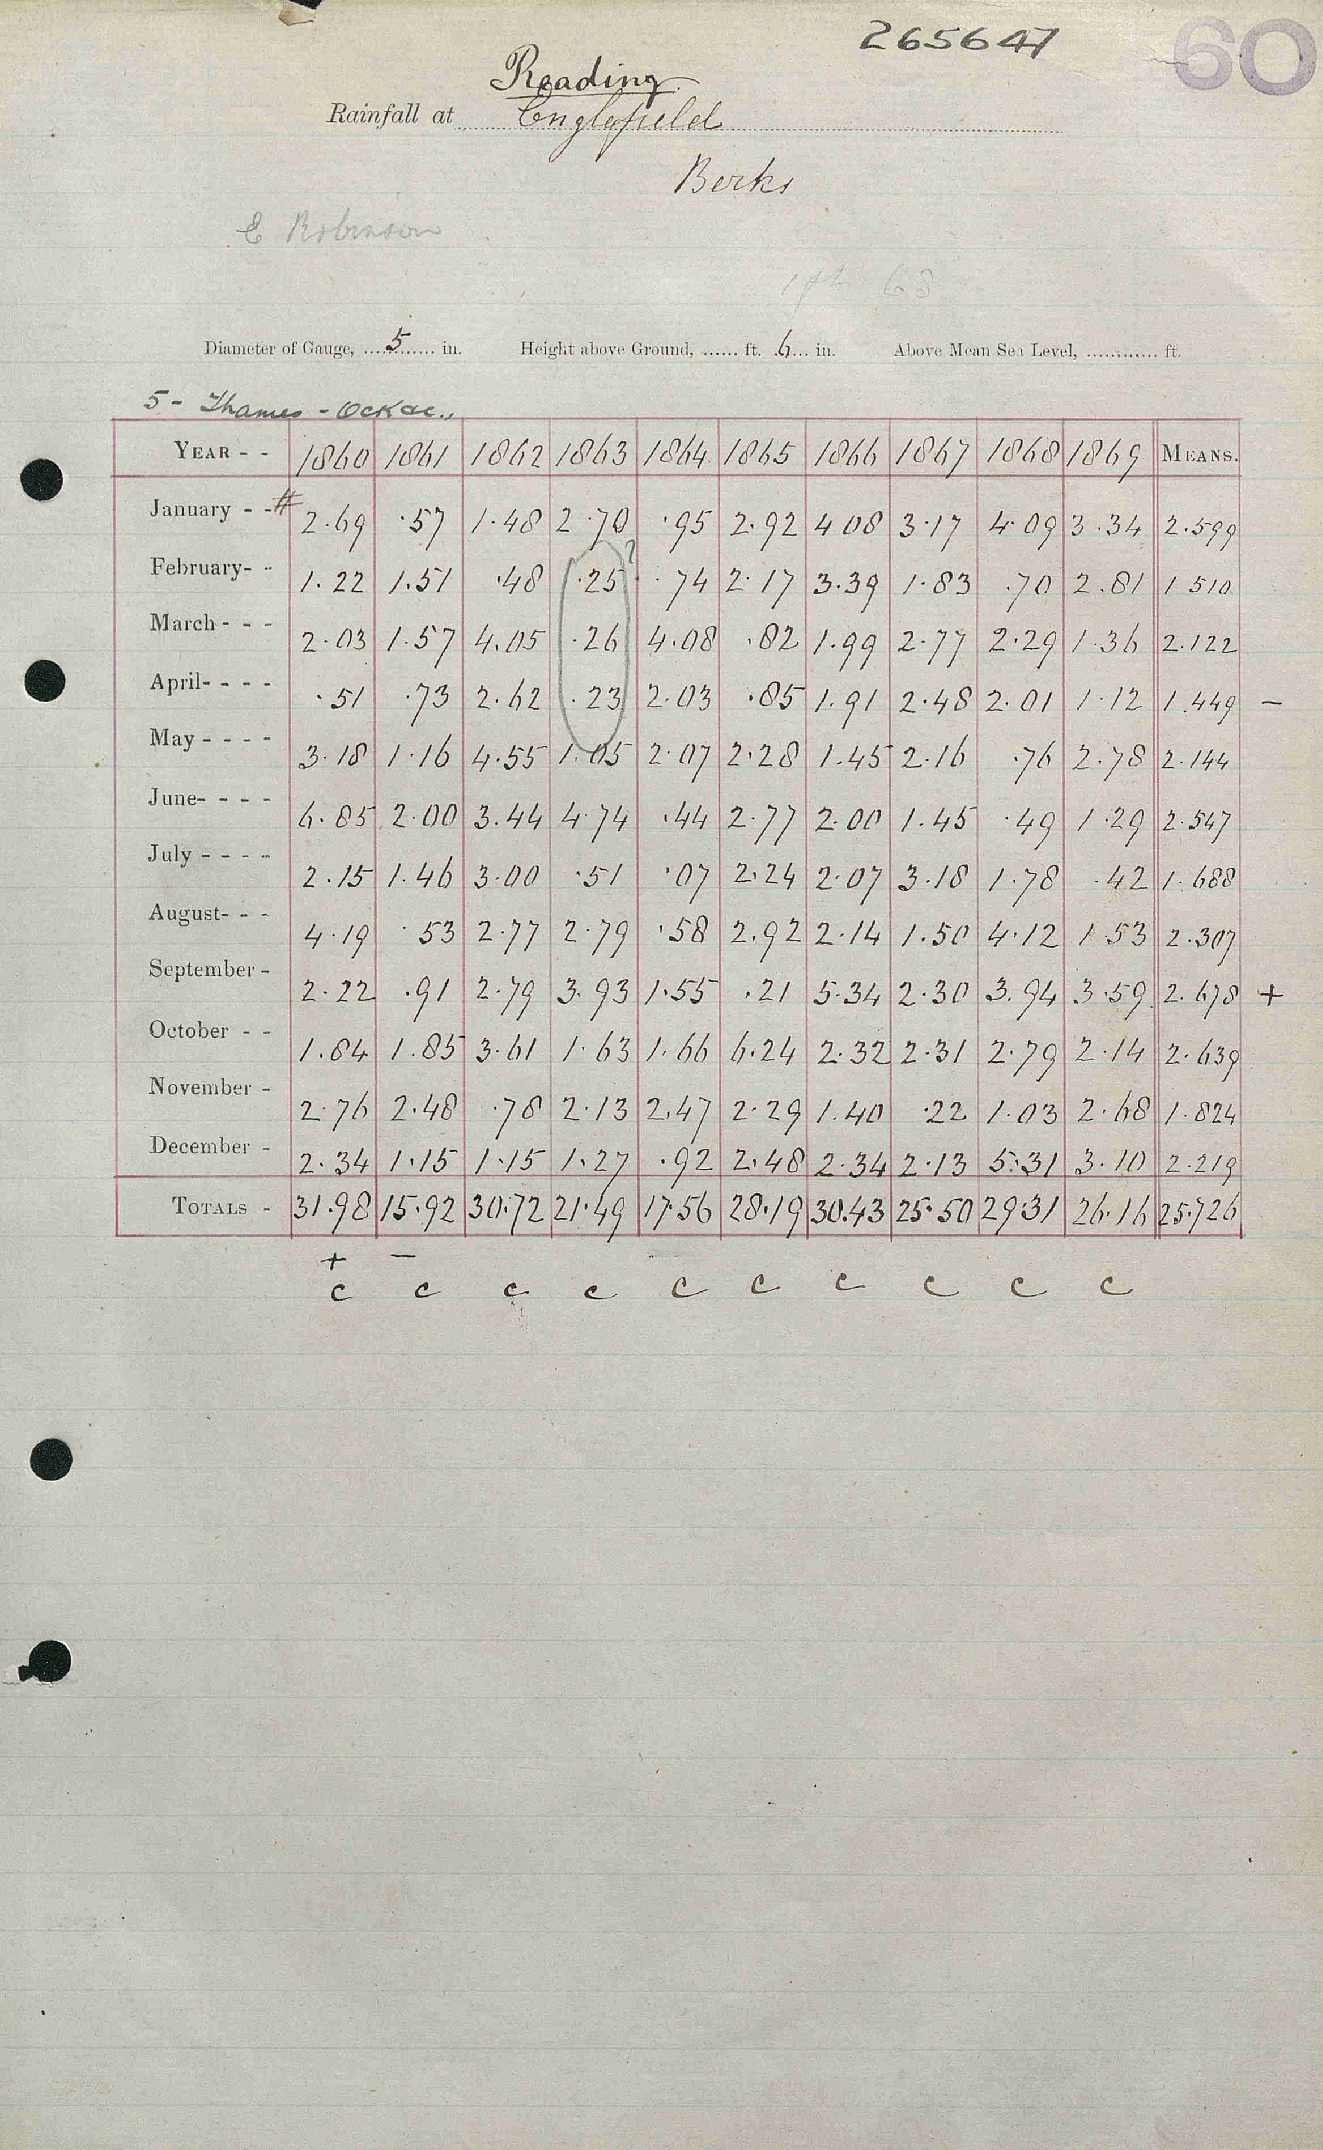 265647 60
Reading
Rainfall at Englefield
Berks
E Robinson
Diameter of Gauge, 5 in. Height above Ground, ft. 6 in. Above Mean Sea Level, ft.
5 - Thames - Ock &c.,
YEAR - - 1860 1861 1862 1863 1864 1865 1866 1867 1868 1869 MEANS.
January - - # 2.69 .57 1.48 2.70 .95 2.92 4.08 3.17 4.09 3.34 2.599
February - - 1.22 1.51 .48 .25 ? .74 2.17 3.39 1.83 .70 2.81 1.510
March - - - 2.03 1.57 4.05 .26 4.08 .82 1.99 2.77 2.29 1.36 2.122
April - - - - .51 .73 2.62 .23 2.03 .85 1.91 2.48 2.01 1.12 1.449 -
May - - - - 3.18 1.16 4.55 1.05 2.07 2.28 1.45 2.16 .76 2.78 2.144
June - - - - 6.85 2.00 3.44 4.74 .44 2.77 2.00 1.45 .49 1.29 2.547
July - - - - 2.15 1.46 3.00 .51 .07 2.24 2.07 3.18 1.78 .42 1.688
August - - - 4.19 .53 2.77 2.79 .58 2.92 2.14 1.50 4.12 1.53 2.307
September - 2.22 .91 2.79 3.93 1.55 .21 5.34 2.30 3.94 3.59 2.678 +
October - - 1.84 1.85 3.61 1.63 1.66 6.24 2.32 2.31 2.79 2.14 2.639
November - 2.76 2.48 .78 2.13 2.47 2.29 1.40 .22 1.03 2.68 1.824
December - 2.34 1.15 1.15 1.27 .92 2.48 2.34 2.13 5.31 3.10 2.219
TOTALS - 31.98 15.92 30.72 21.49 17.56 28.19 30.43 25.50 29.31 26.16 25.726
+ -
c c c c c c c c c c